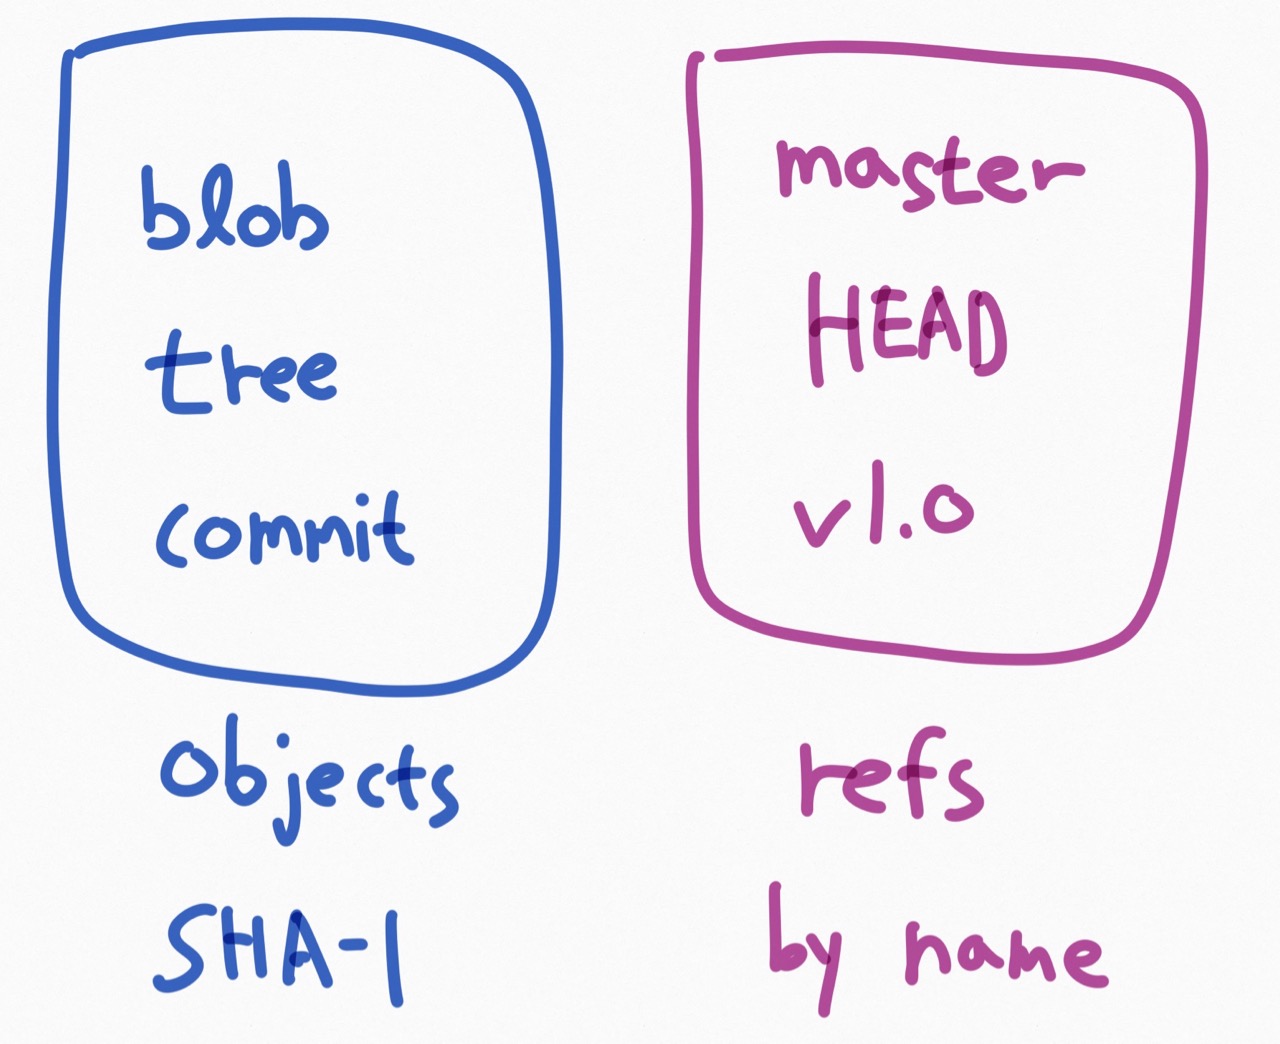 blob
tree
commit
objects
SHA-1
master
HEAD
v1.0
refs
by name